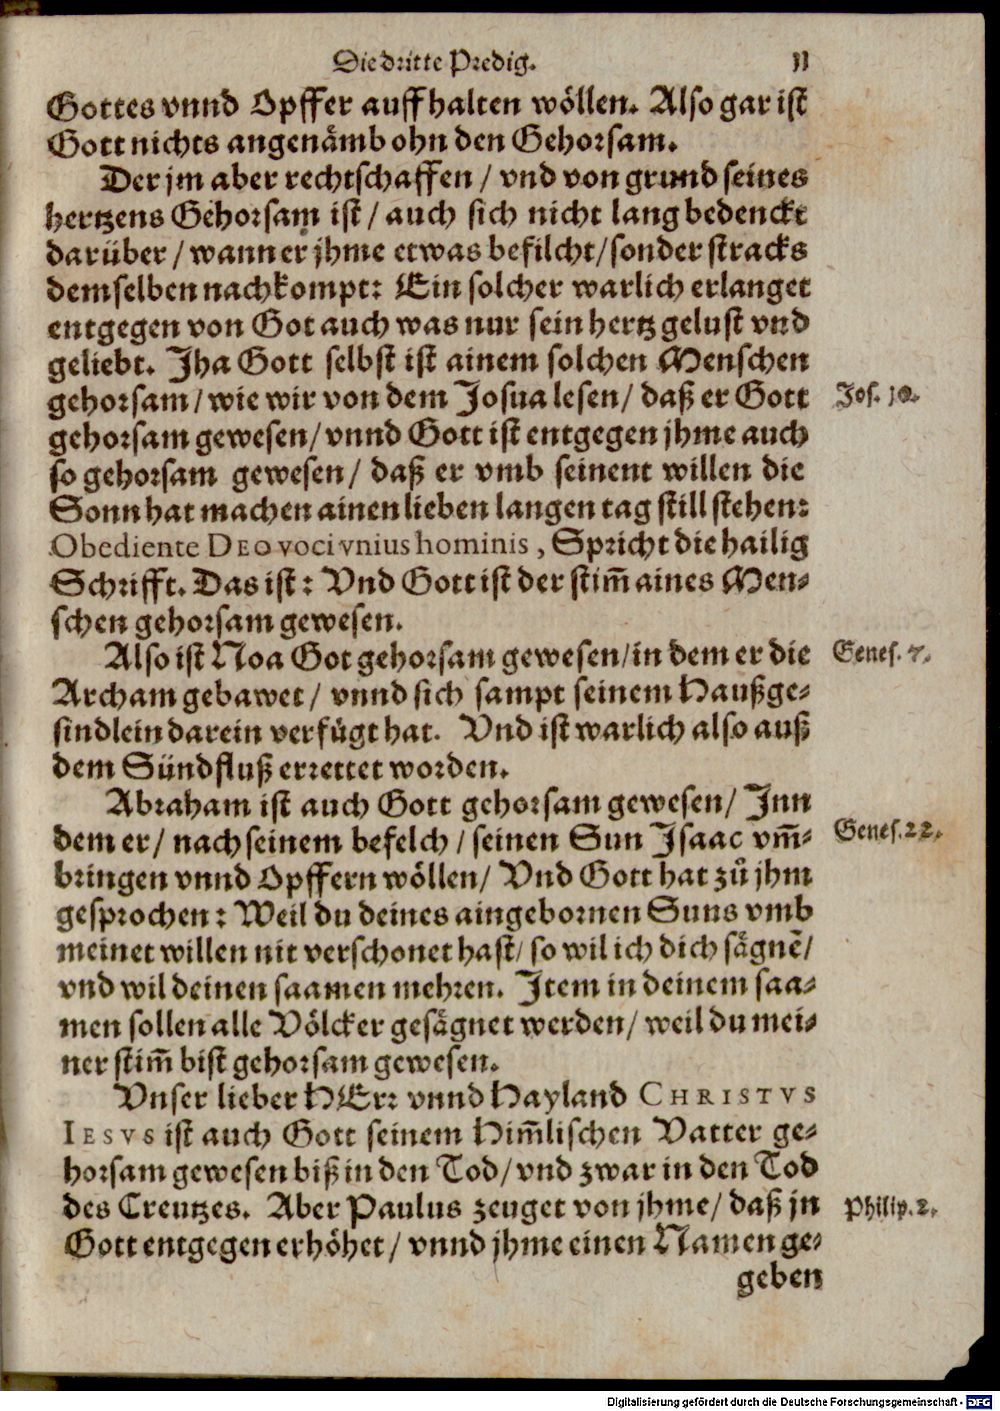 Die dritte Predig. 11
Gottes vnnd Opffer auffhalten wöllen. Also gar ist
Gott nichts angenämb ohn den Gehorsam.
Der jm aber rechtschaffen / vnd von grund seines
hertzens Gehorsam ist / auch sich nicht lang bedenckt
darüber / wann er jhme etwas befilcht / sonder stracks
demselben nachkompt: Ein solcher warlich erlanget
entgegen von Got auch was nur sein hertz gelust vnd
geliebt. Jha Gott selbst ist ainem solchen Menschen
gehorsam / wie wir von dem Josua lesen / daß er Gott
Jos. 10.
gehorsam gewesen / vnnd Gott ist entgegen jhme auch
so gehorsam gewesen / daß er vmb seinent willen die
Sonn hat machen ainen lieben langen tag still stehen:
Obediente DEO voci vnius hominis, Spricht die hailig
Schrifft. Das ist: Vnd Gott ist der stim̃ aines Men-
schen gehorsam gewesen.
Also ist Noa Got gehorsam gewesen / in dem er die
Genes. 7.
Archam gebawet / vnnd sich sampt seinem Haußge-
sindlein darein verfügt hat. Vnd ist warlich also auß
dem Sündfluß errettet worden.
Abraham ist auch Gott gehorsam gewesen / Jnn
dem er / nach seinem befelch / seinen Sun Jsaac vm̃-
Genes. 22.
bringen vnnd Opffern wöllen / Vnd Gott hat zů jhm
gesprochen: Weil du deines aingebornen Suns vmb
meinet willen nit verschonet hast / so wil ich dich sägnẽ /
vnd wil deinen saamen mehren. Jtem in deinem saa-
men sollen alle Völcker gesägnet werden / weil du mei-
ner stim̃ bist gehorsam gewesen.
Vnser lieber HErr vnnd Hayland CHRISTVS
IESVS ist auch Gott seinem Him̃lischen Vatter ge-
horsam gewesen biß in den Tod / vnd zwar in den Tod
des Creutzes. Aber Paulus zeuget von jhme / daß jn
Philip. 2.
Gott entgegen erhöhet / vnnd jhme einen Namen ge-
geben
Digitalisierung gefördert durch die Deutsche Forschungsgemeinschaft - DFG